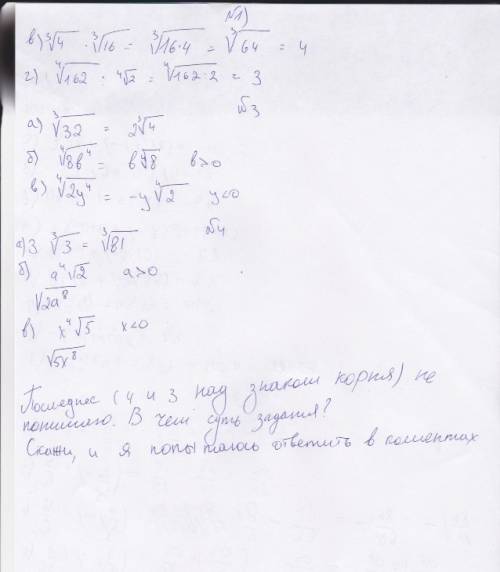 №1)
в) ∛4 · ∛16 = ∛16·4 = ∛64 = 4
г) ∜162 · ∜2 = ∜162·2 = 3
№3
а) ∛32 = 2∛4
б) ∜8b⁴ = b∜8 b>0
в) ∜2y⁴ = -y∜2 y<0
№4
а) 3 ∛3 = ∛81
б) a⁴√2 a>0
√2a⁸
в) x⁴√5 x<0
√5x⁸
Последнее (4 и 3 над знаком корня) не
понимаю. В чем суть задания?
Скажи, и я попытаюсь ответить в коментах